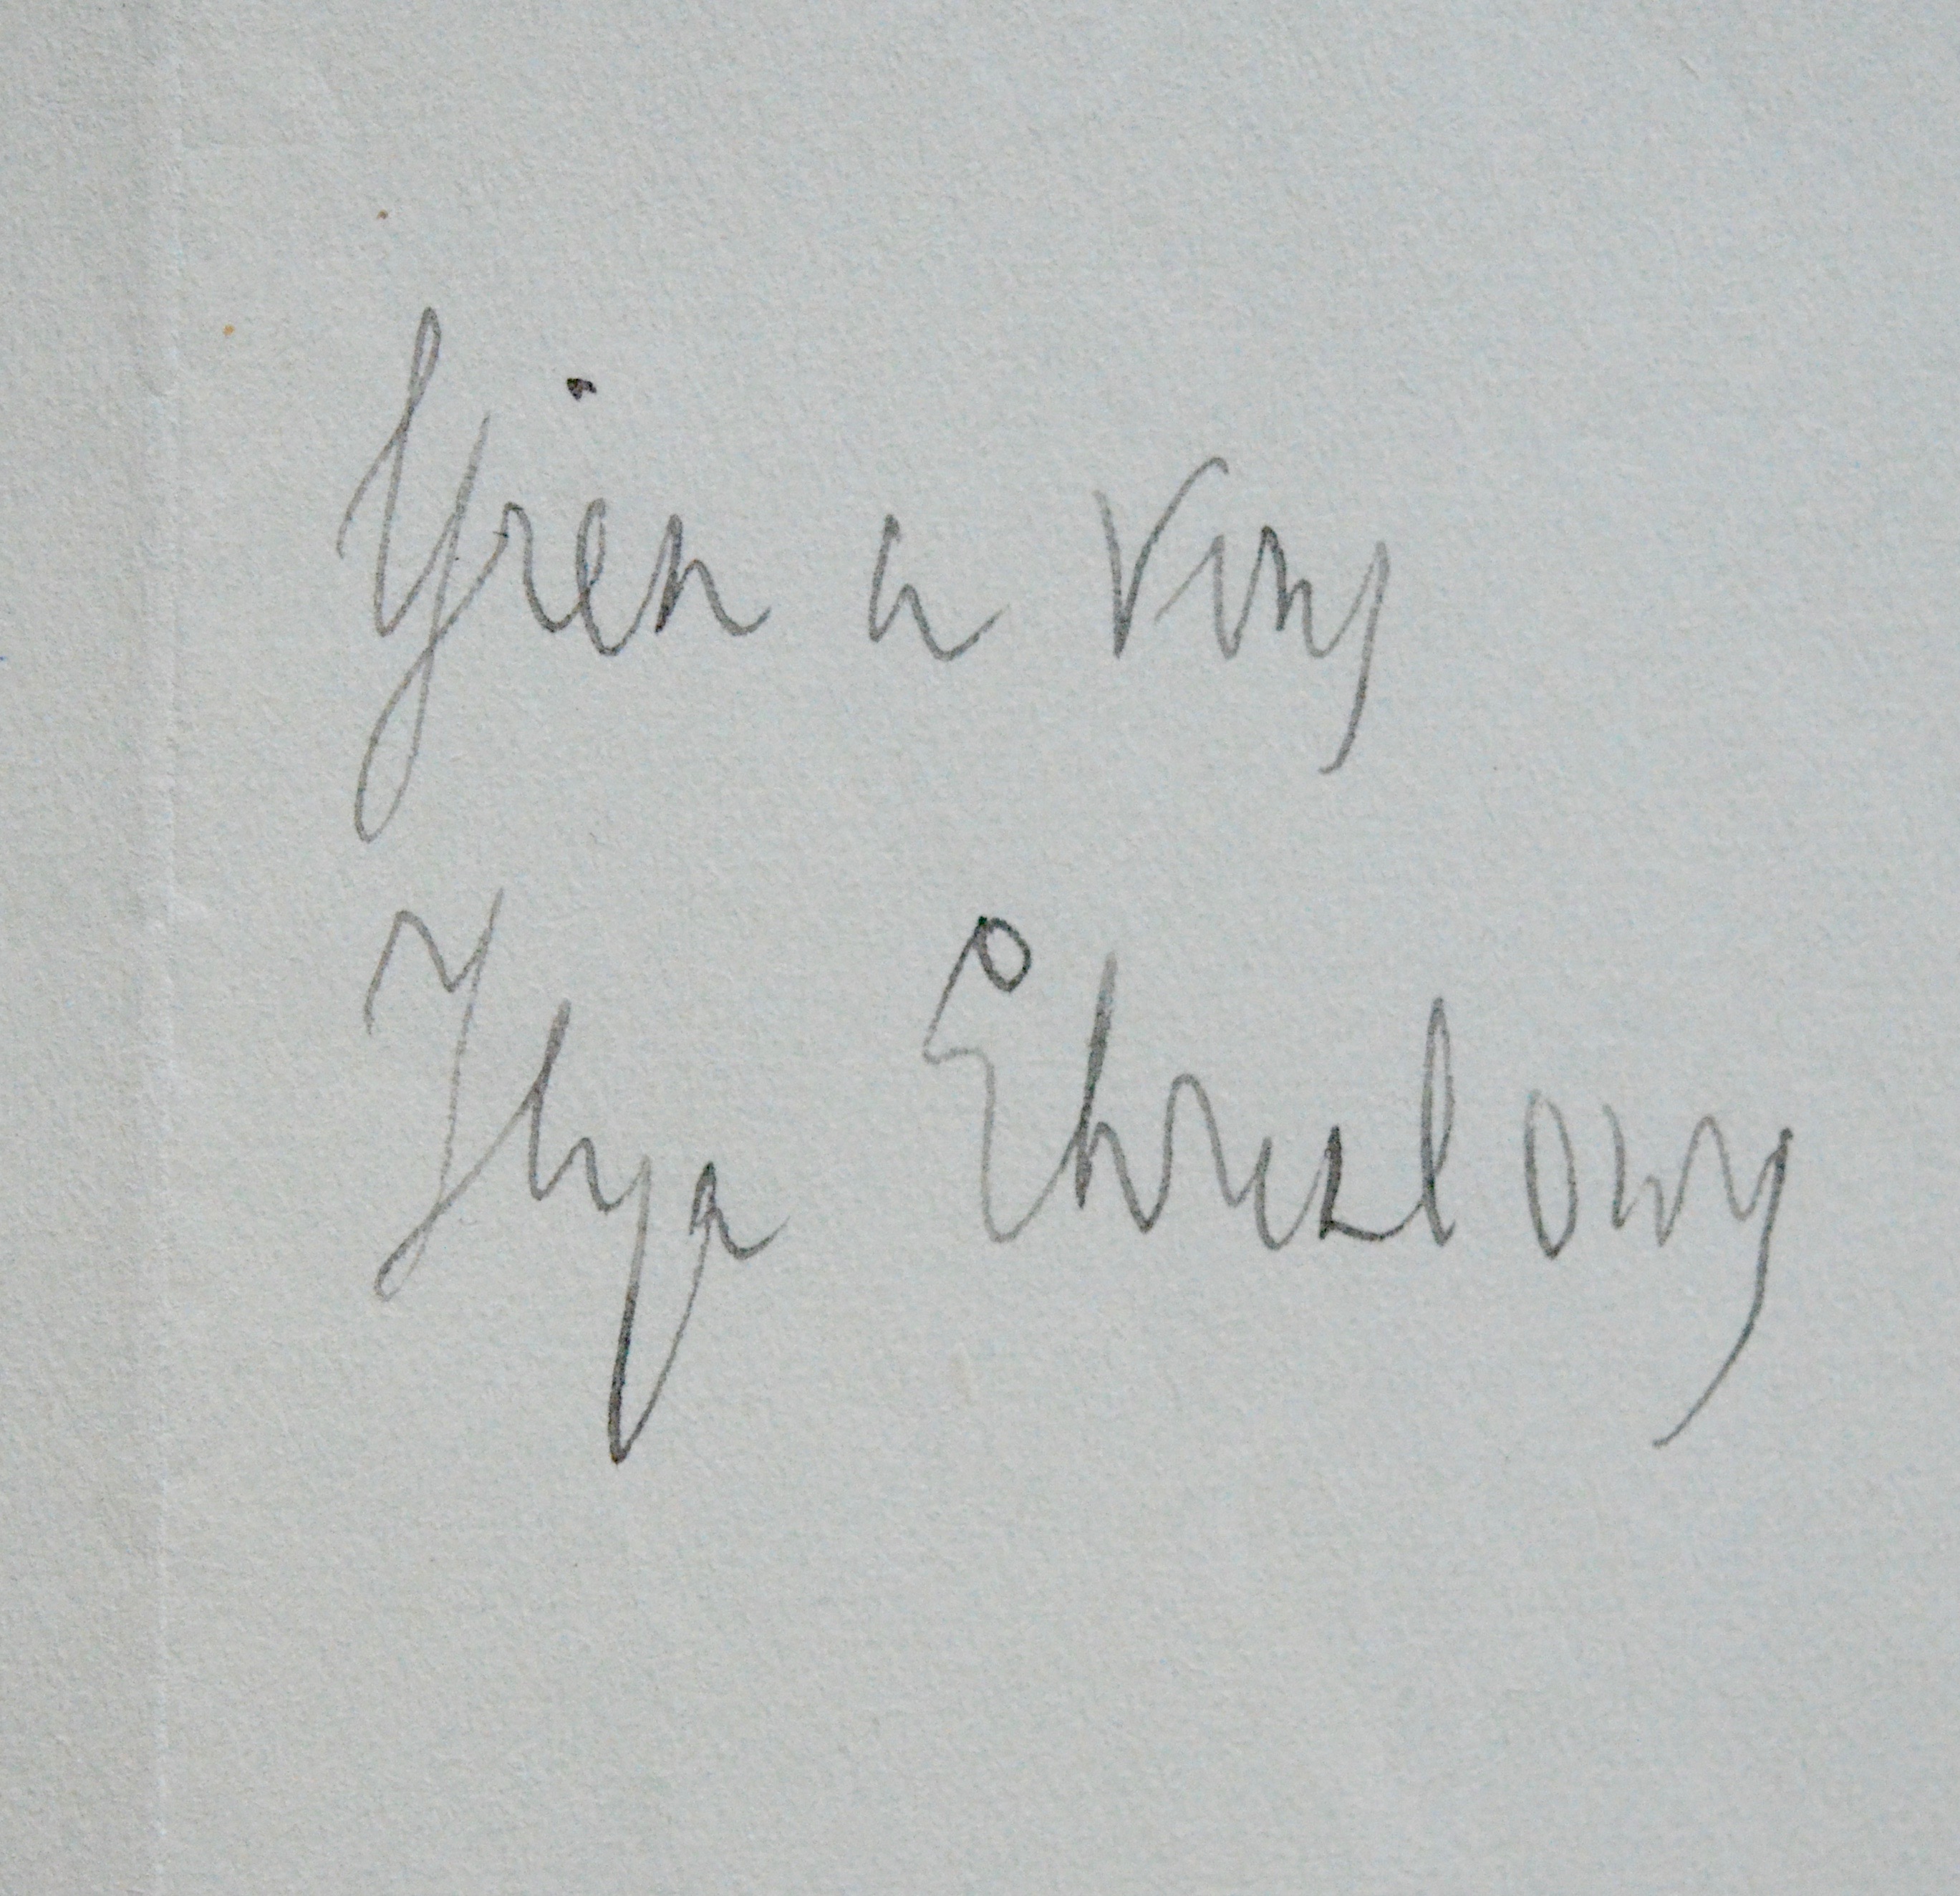 bien a vous
Ilya Ehrenbourg